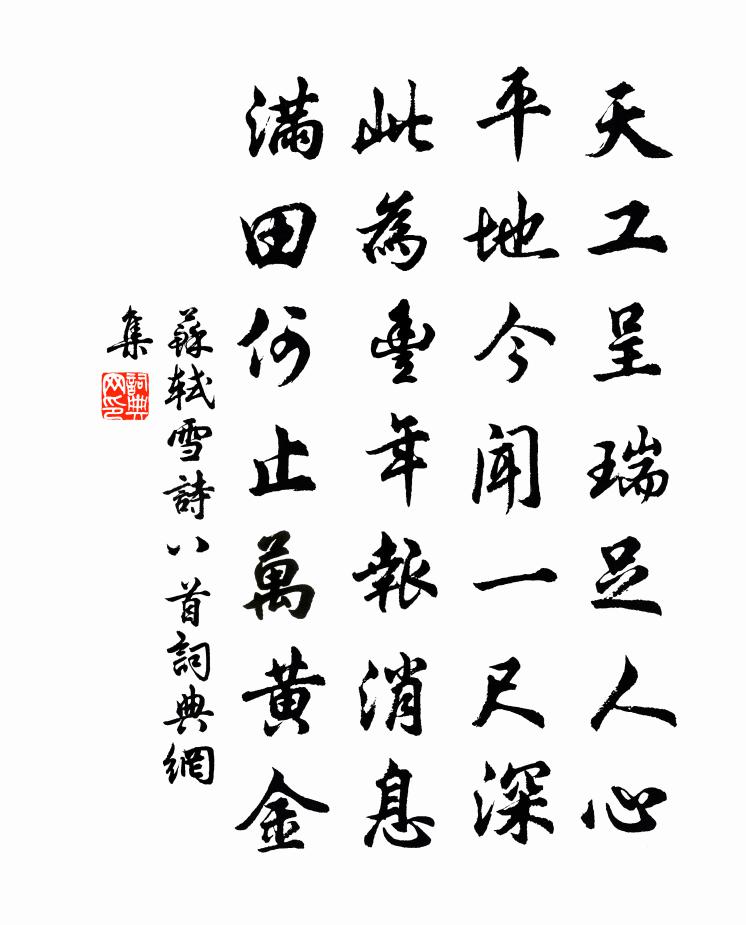 天工呈瑞足人心
平地今聞一尺深
此為豐年報消息
滿田何止萬黃金
蘇軾雪詩八首詞典網
集
詞典
网印